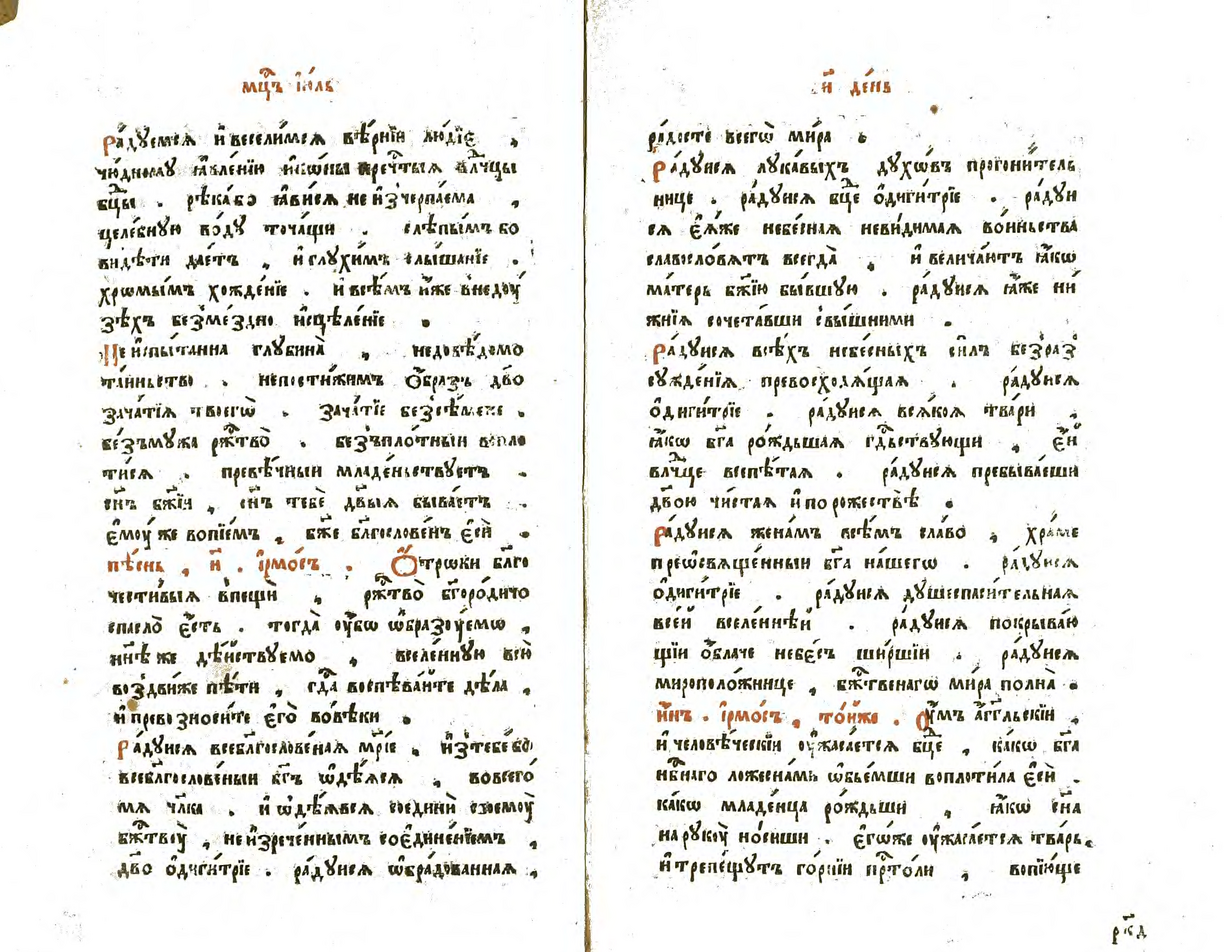 мц҃ъ і҆ю́ль
ра́дуемсѧ и҆ веселимсѧ вѣ́рнїи лю́дїе ,
чю́дному ꙗ҆вле́нїю и҆ко́ны пречⷭ҇тыѧ влⷣчцы
бцⷣы . рѣка́ бо ꙗ҆ви́сѧ не и҆зчерпа́ема ,
целе́бную во́ду точа́щи . слѣпы́мъ бо
ви́дѣти дае́тъ , и҆ глухи́мъ слы́шанїе .
хромы́мъ хожде́нїе . и҆ всѣ́мъ и҆́же в недоу́
зѣхъ безме́здно и҆сцѣле́нїе .
Не и҆спы́танна глубина̀ , недовѣ́домо
та́иньство . непости́жимъ ѻ҆́бразъ дв҃о
зача́тїѧ твоегѡ̀ . зача́тїе безсѣ́мене .
без̾мужа ржⷭ҇тво̀ . без̾пло́тныи вопло
ти́сѧ . превѣ́чныи младе́ньствуетъ .
сн҃ъ бж҃їи , сн҃ъ тебѐ дв҃ыѧ быва́етъ .
є҆моу́же вопїе́мъ , бж҃е бл҃гослове́нъ є҆сѝ .
пѣ́снь , и҃ . і҆рмо́съ . Ѻ҆́троки бл҃го
чести́выѧ в пещѝ , ржⷭ҇тво̀ бг҃оро́дичо
спасло̀ є҆́сть . тогда̀ оу҆́бѡ ѡ҆бразоу́емѡ ,
нн҃ѣ же дѣ́йствуемо , вселе́нную всю̀
воздви́же пѣ́ти , гдⷭ҇а воспѣва́ите дѣ́ла ,
и҆ превозноси́те є҆го̀ во вѣ́ки .
Ра́дуисѧ всебл҃гослове́наѧ мр҃їе , и҆з̾ тебе́ бо
всебл҃гослове́ныи бг҃ъ ѡ҆дѣ́ѧсѧ , во всего́
мѧ чл҃ка . и҆ ѡ҆дѣ́ѧвсѧ соединѝ своемоу̀
бжⷭ҇твоу̀ , не и҆зрече́ннымъ соедине́нїемъ ,
дв҃о ѻ҆диги́трїе . ра́дуисѧ ѡ҆бра́дованнаѧ ,
и҃ де́нь
ра́досте всегѡ̀ ми́ра .
Ра́дуисѧ лука́выхъ духо́въ прогони́тель
нице . ра́дуисѧ бцⷣе ѻ҆диги́трїе . ра́дуи
сѧ є҆ѧ́же небе́снаѧ неви́димаѧ во́иньства
славосло́вѧтъ всегда̀ , и҆ велича́ютъ ꙗ҆́кѡ
ма́терь бж҃їю бы́вшую . ра́дуисѧ ꙗ҆́же ни́
жнїѧ сочета́вши с вы́шними .
Ра́дуисѧ всѣ́хъ небе́сныхъ си́лъ безраз̾
сужде́нїѧ превосходѧ́щаѧ . ра́дуисѧ
ѻ҆диги́трїе . ра́дуисѧ всѧ́коѧ тва́ри ,
ꙗ҆́кѡ бг҃а ро́ждьшаѧ гдⷭ҇ьствующи , є҆́й
влⷣчце воспѣ́таѧ . ра́дуисѧ пребыва́еши
дв҃ою чи́стаѧ и҆ по рожествѣ̀ .
Ра́дуисѧ жена́мъ всѣ́мъ сла́во , хра́ме
преѡсвѧще́нныи бг҃а на́шегѡ . ра́дуисѧ
ѻ҆диги́трїе . ра́дуисѧ душеспаси́тельнаѧ
все́й вселе́ннѣй . ра́дуисѧ покрыва́ю
щїи ѻ҆́блаче небе́съ ши́ршїи . ра́дуисѧ
мироположнице , бжⷭ҇твенагѡ ми́ра полна̀ .
и҆́нъ . і҆рмо́съ , то́иже . Оу҆́мъ а҆́гг҃льскїи ,
и҆ человѣ́ческїи оу҆жаса́етсѧ бцⷣе , ка́кѡ бг҃а
нбⷭ҇наго ложесна́мъ ѡ҆бье́мши воплоти́ла є҆сѝ .
ка́кѡ младе́нца ро́ждьши , ꙗ҆́кѡ сн҃а
на рукоу̀ но́сиши . є҆гѡ́же оу҆жаса́етсѧ тва́рь ,
и҆ трепе́щутъ го́рнїи прⷭ҇то́ли , вопїю́ще
рк҃д